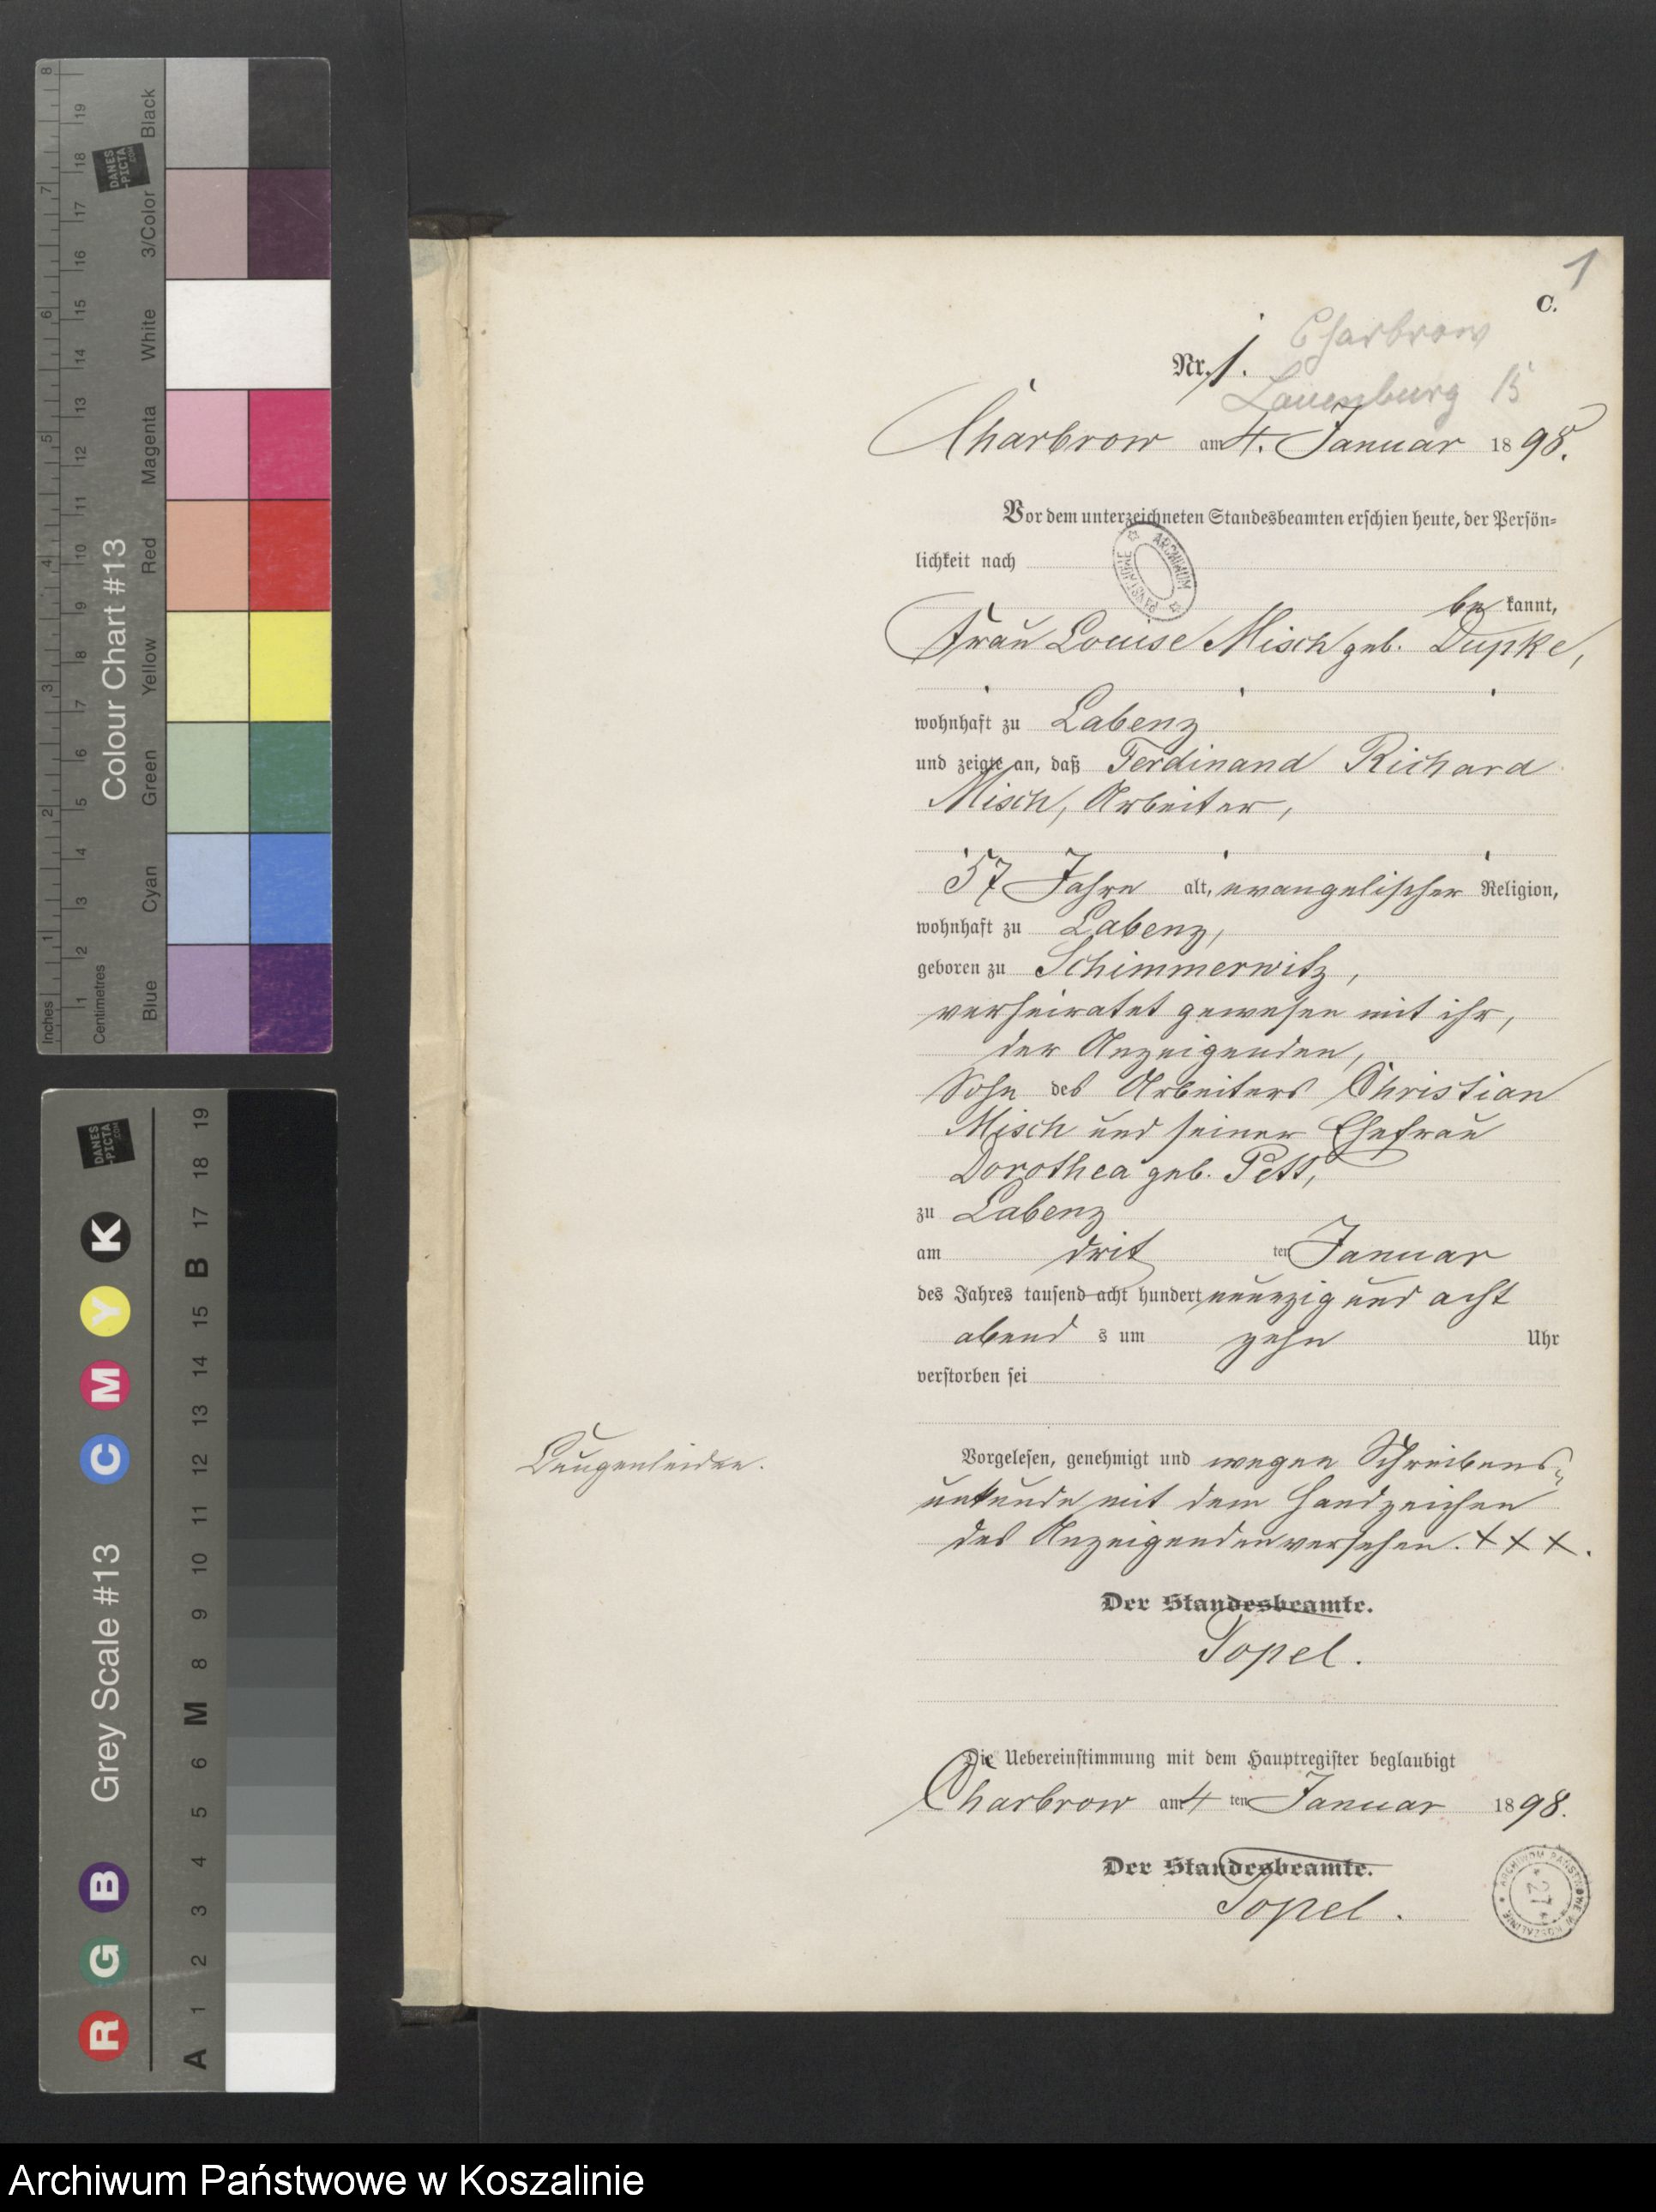 1
C.
Charbrow
Nr. 1.
Lauenburg
Charbrow am 4. Januar 1898.
Vor dem unterzeichneten Standesbeamten erschien heute, der Persön-
lichkeit nach
bekannt,
Frau Louise Misch geb. Dupke,
wohnhaft zu Labenz
und zeigte an, daß Ferdinand Richard
Misch, Arbeiter,
57 Jahre alt, evangelischer Religion,
wohnhaft zu Labenz,
geboren zu Schimmerwitz,
verheiratet gewesen mit ihr,
der Anzeigenden,
Sohn des Arbeiters Christian
Misch und seiner Ehefrau
Dorothea geb. Pett,
zu Labenz
am dritten Januar
des Jahres tausend acht hundert neunzig und acht
abends um zehn Uhr
verstorben sei
Lungenleiden.
Vorgelesen, genehmigt und wegen Schreibens-
unkunde mit dem Handzeichen
des Anzeigenden versehen. XXX.
Der Standesbeamte.
Topel.
Die Uebereinstimmung mit dem Hauptregister beglaubigt
Charbrow am 4ten Januar 1898.
Der Standesbeamte.
Topel.
ARCHIWUM PAŃSTWOWE W KOSZALINIE
27
Colour Chart #13
Inches
Centimetres
Blue
Cyan
Green
Yellow
Red
Magenta
White
3/Color
Black
DANES
-PICTA
.COM
Grey Scale #13
R G B C M Y K
A 1 2 3 4 5 6 M 8 9 10 11 12 13 14 15 B 17 18 19
DANES
-PICTA
.COM
Archiwum Państwowe w Koszalinie